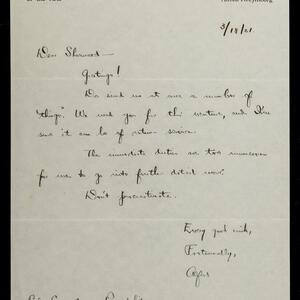 3/18/21
Dear Sherwood—
Greetings!
Do send us at once a number of
"things". We need you for this venture, and I'm
sure it can be of return service.
The immediate duties are too numerous
for me to go into further detail now.
Don't procrastinate.
Every good wish,
Fraternally,